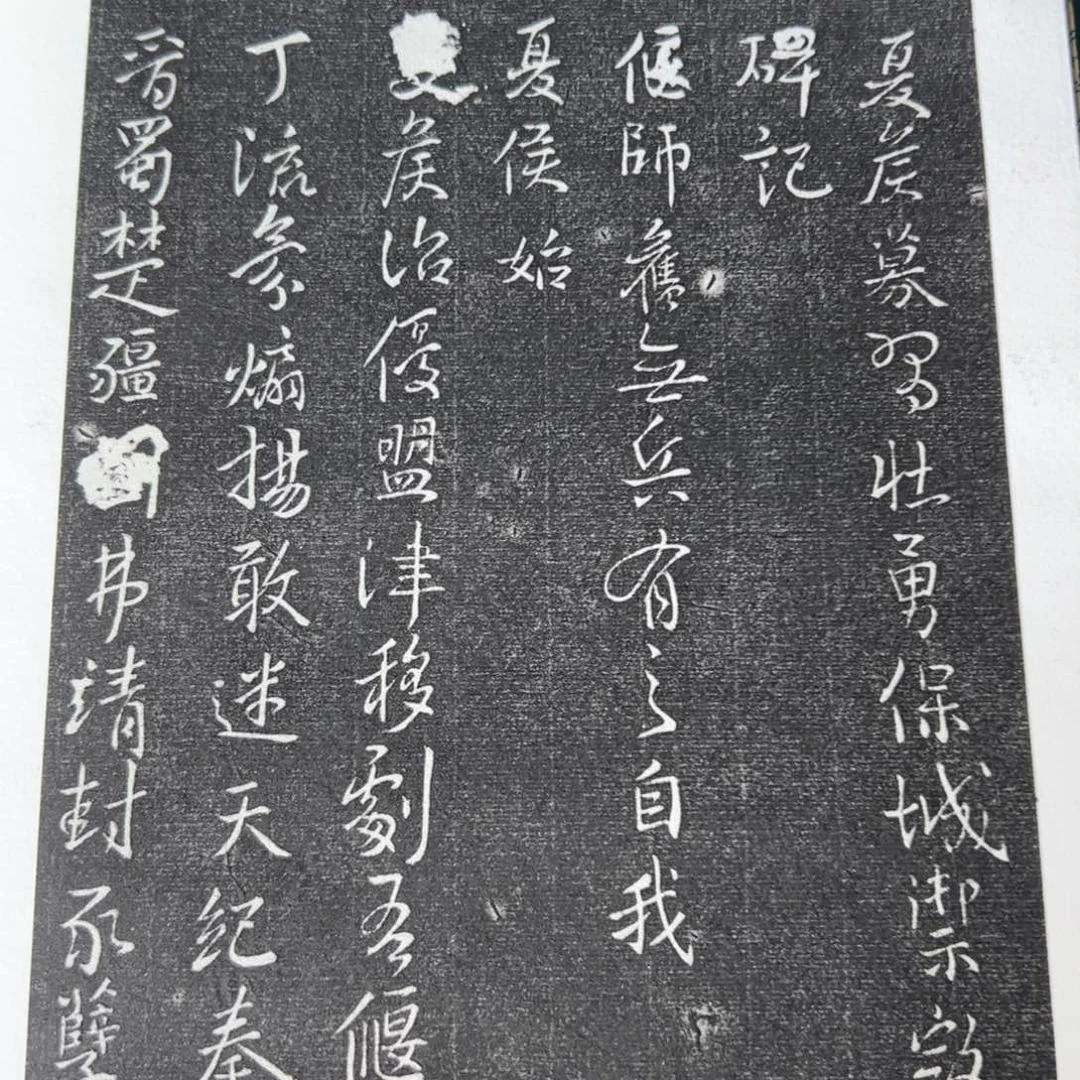 夏侯募習壯勇保城禦寇
碑記
偃師舊無兵有之自我
夏侯始
侯治優盟津移劇吾偃
丁流氛煽揚敢迷天紀奉
晉蜀楚疆弗靖封豕孽